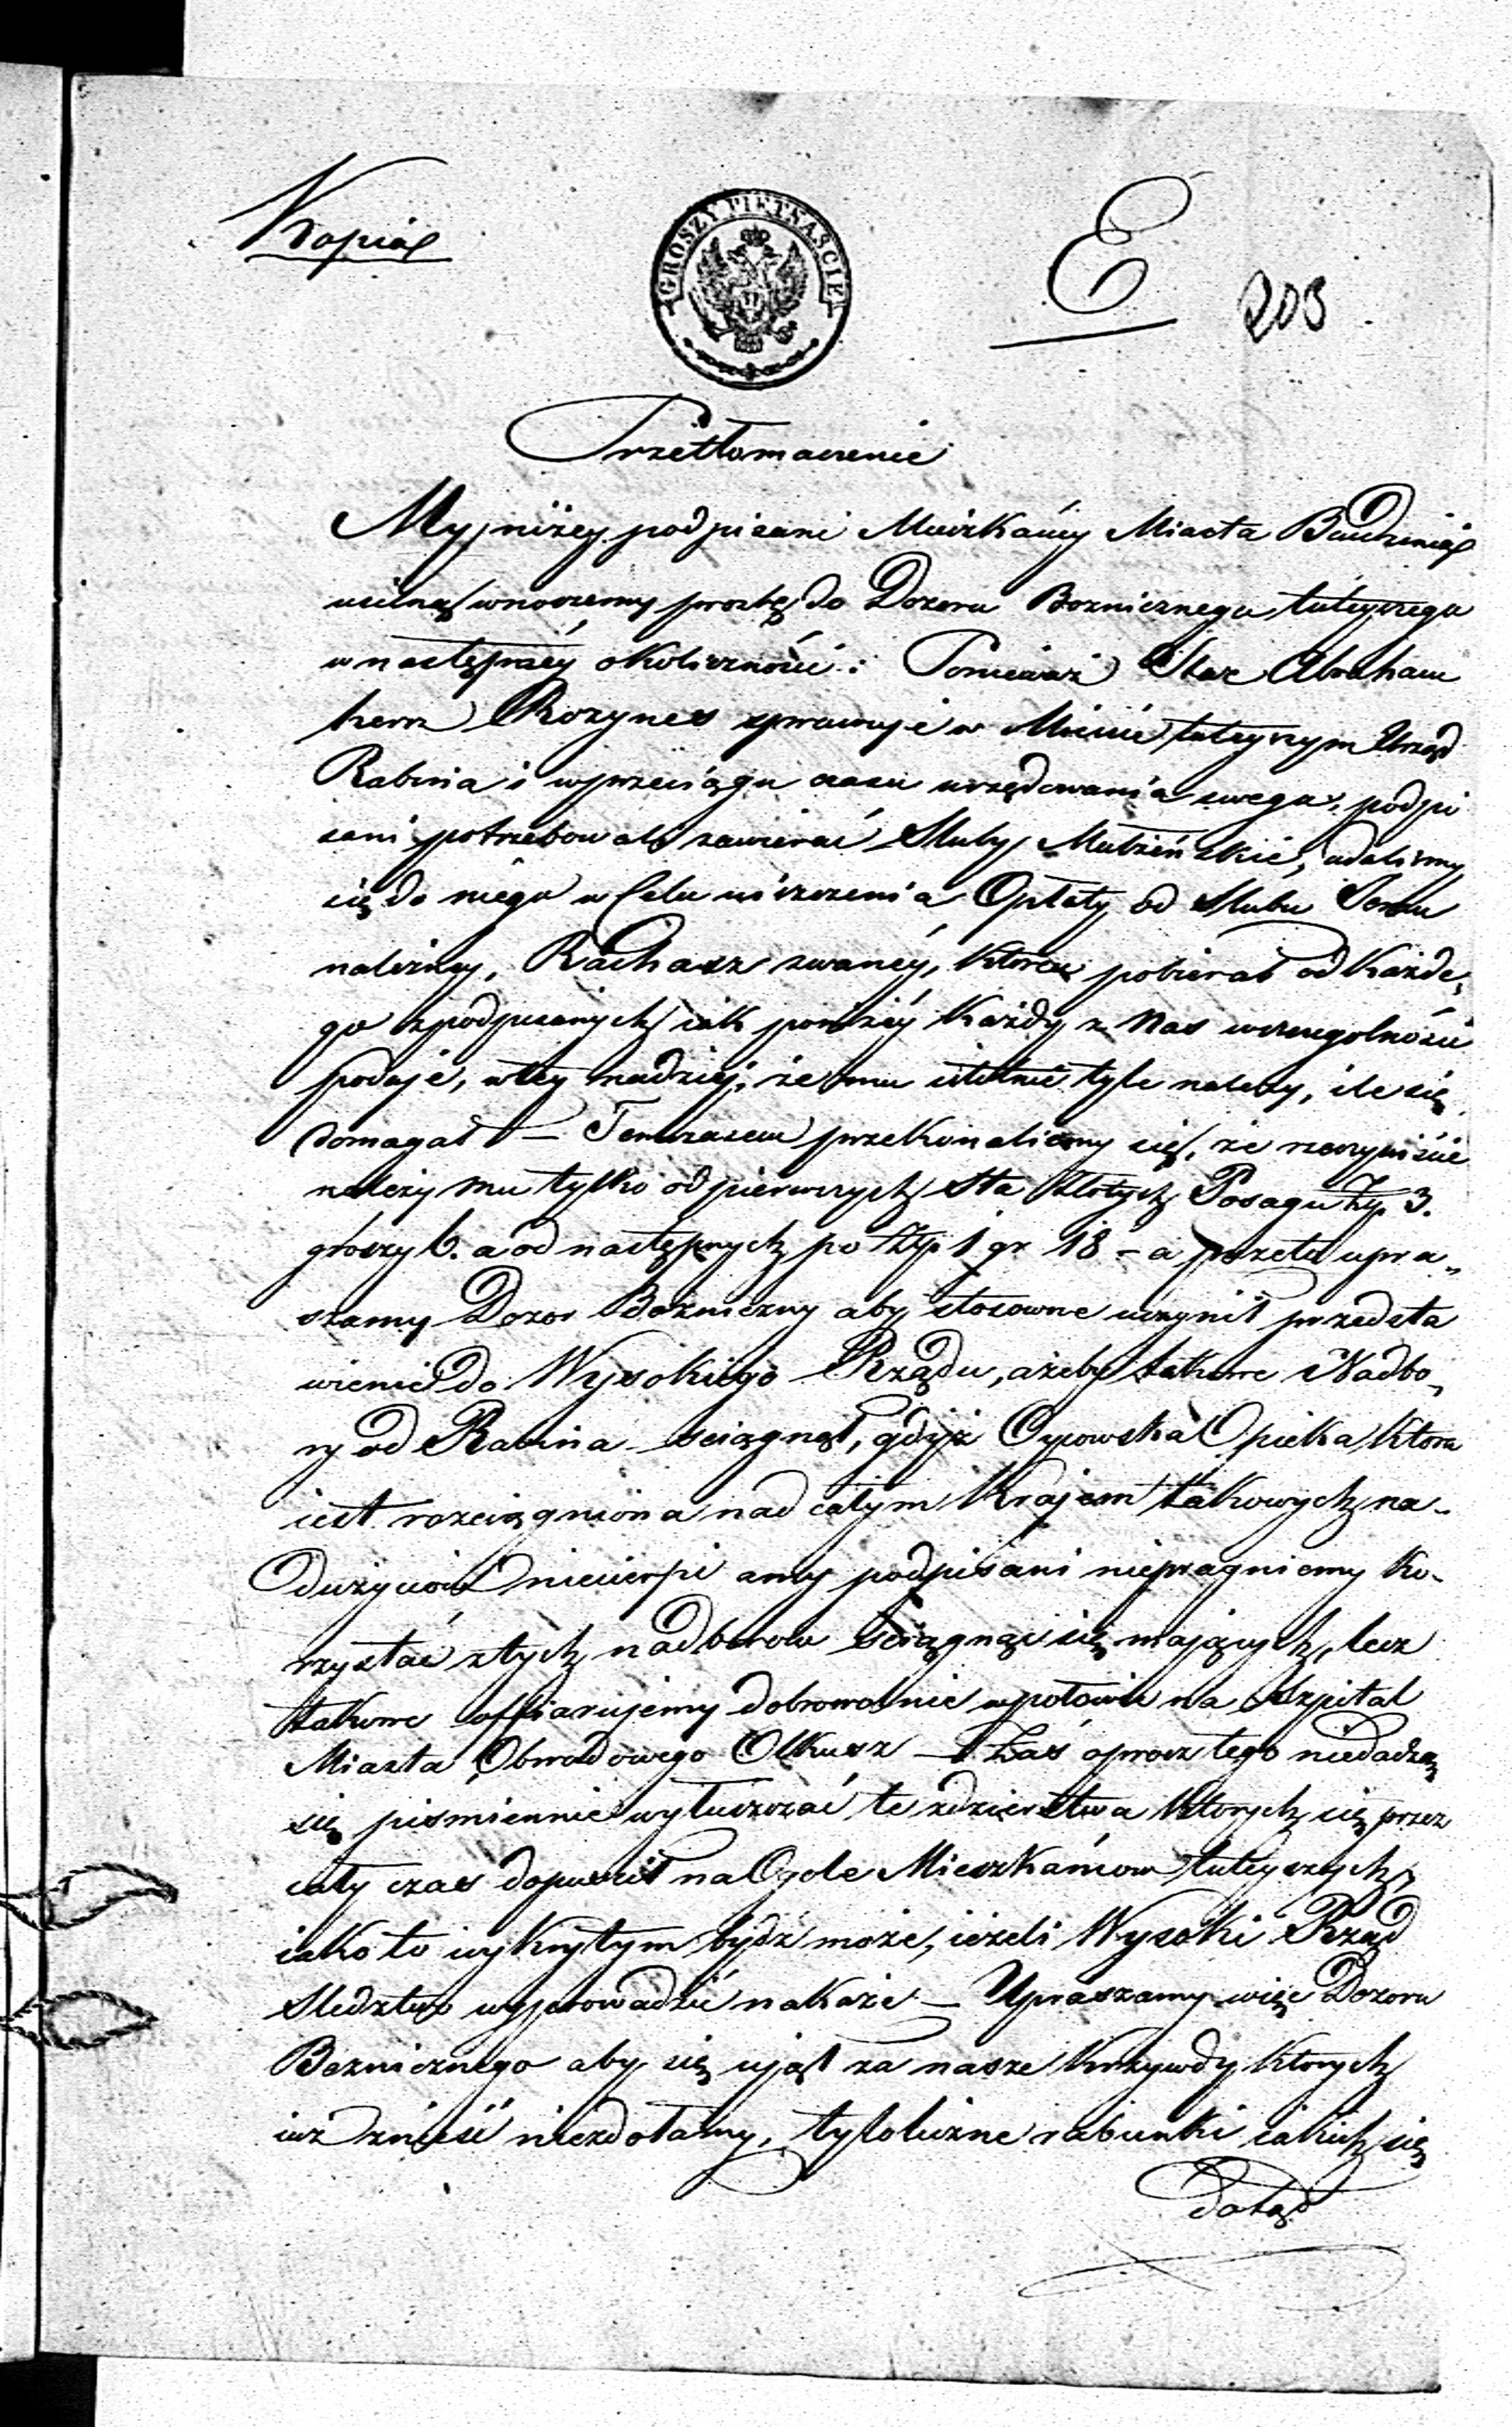 Kopia
GROSZY PIETNAŚCIE
E
203
Przetłomaczenie
My niżey podpisani Mieszkańcy Miasta Bendzina
usilną wnosiemy prozbę do Dozoru Boznicznego tuteyszego
w następnéy okoliczności: Ponieważ Star Abraham
herz Rozynes sprawuje w Mieście tuteyszym Urząd
Rabina i w przeciągu czasu urzędowania swego, podpi
sani potrzebowali zawierać Sluby Małżeńskie, udalismy
się do niego w Celu uiszczenia Opłaty od Slubu Jemu
należney, Rachasz zwanéy, którą pobierał od Każde„
go z podpisanych iak poniżéy Każdy z Nas wszczegolności
podaje, w tey nadziei, że mu istotnie tyle należy, ile się
domagał — Temczasem przekonalismy się, że rzeczywiście
należy mu tylko od pierwszych sta Złotych Posagu Złp. 3.
groszy 6. a od następnych po Złp 1 gr 18 – a przeto upra„
szamy Dozor Bożniczny aby stosowne uczynił przedsta
wienie do Wysokiego Rządu, ażeby takowe Nadbo„
ry od Rabina sciągnął, gdyż Oycowska Opieka Ktora
iest rozciągniona nad całym Krajem takowych na„
dużyciów niecierpi a my podpisani niepragniemy Ko„
rzystać z tych nadborow sciągnąć się mających, lecz
takowe offiarujemy dobrowolnie w połowie na Szpital
Miasta Obwodowego Olkusz — Zaś oprocz tego niedadzą
się pismiennie wyłuszczać te zdzierstwa Ktorych się przez
cały czas dopuscił na Ogole Mieszkańcow tuteyszych,
iako to wykrytym bydź może, ieżeli Wysoki Rząd
Sledztwo wyprowadzić nakaże — Upraszamy więc Dozoru
Bożnicznego aby się ujął za nasze Krzywdy Ktorych
iuż znieść niezdołamy, tyloliczne rabunki iakich się
dotąd